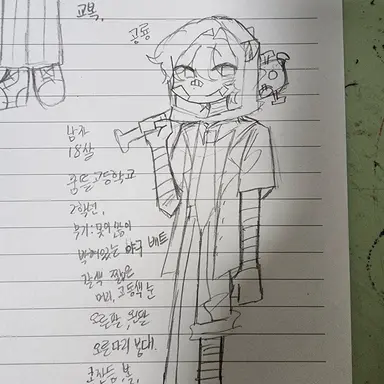 교복.
공룡
남자
18살
고등학교
2학년.
무기: 못이 많이
박혀있는 야구 배트
갈색 짧은
머리, 고동색 눈
오른팔, 왼팔
오른다리 붕대.